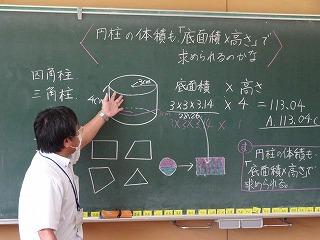 円柱の体積も、「底面積×高さ」で
求められるのかな
四角柱
三角柱
3cm
4cm
底面積 × 高さ
3×3×3.14 × 4 = 113.04
28.26
A. 113.04
ま
円柱の体積も
「底面積×高さ」で
求められる。